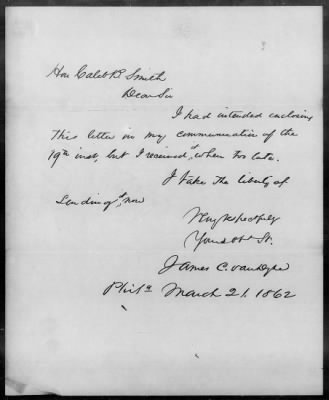 Hon Caleb B. Smith
Dear Sir
I had intended enclosing
this letter in my communication of the
19th inst, but I received it when too late.
I take the liberty of
sending it, now
Very Respectfully
Your obt St.
James C. VanDyke
Phila March 21. 1862